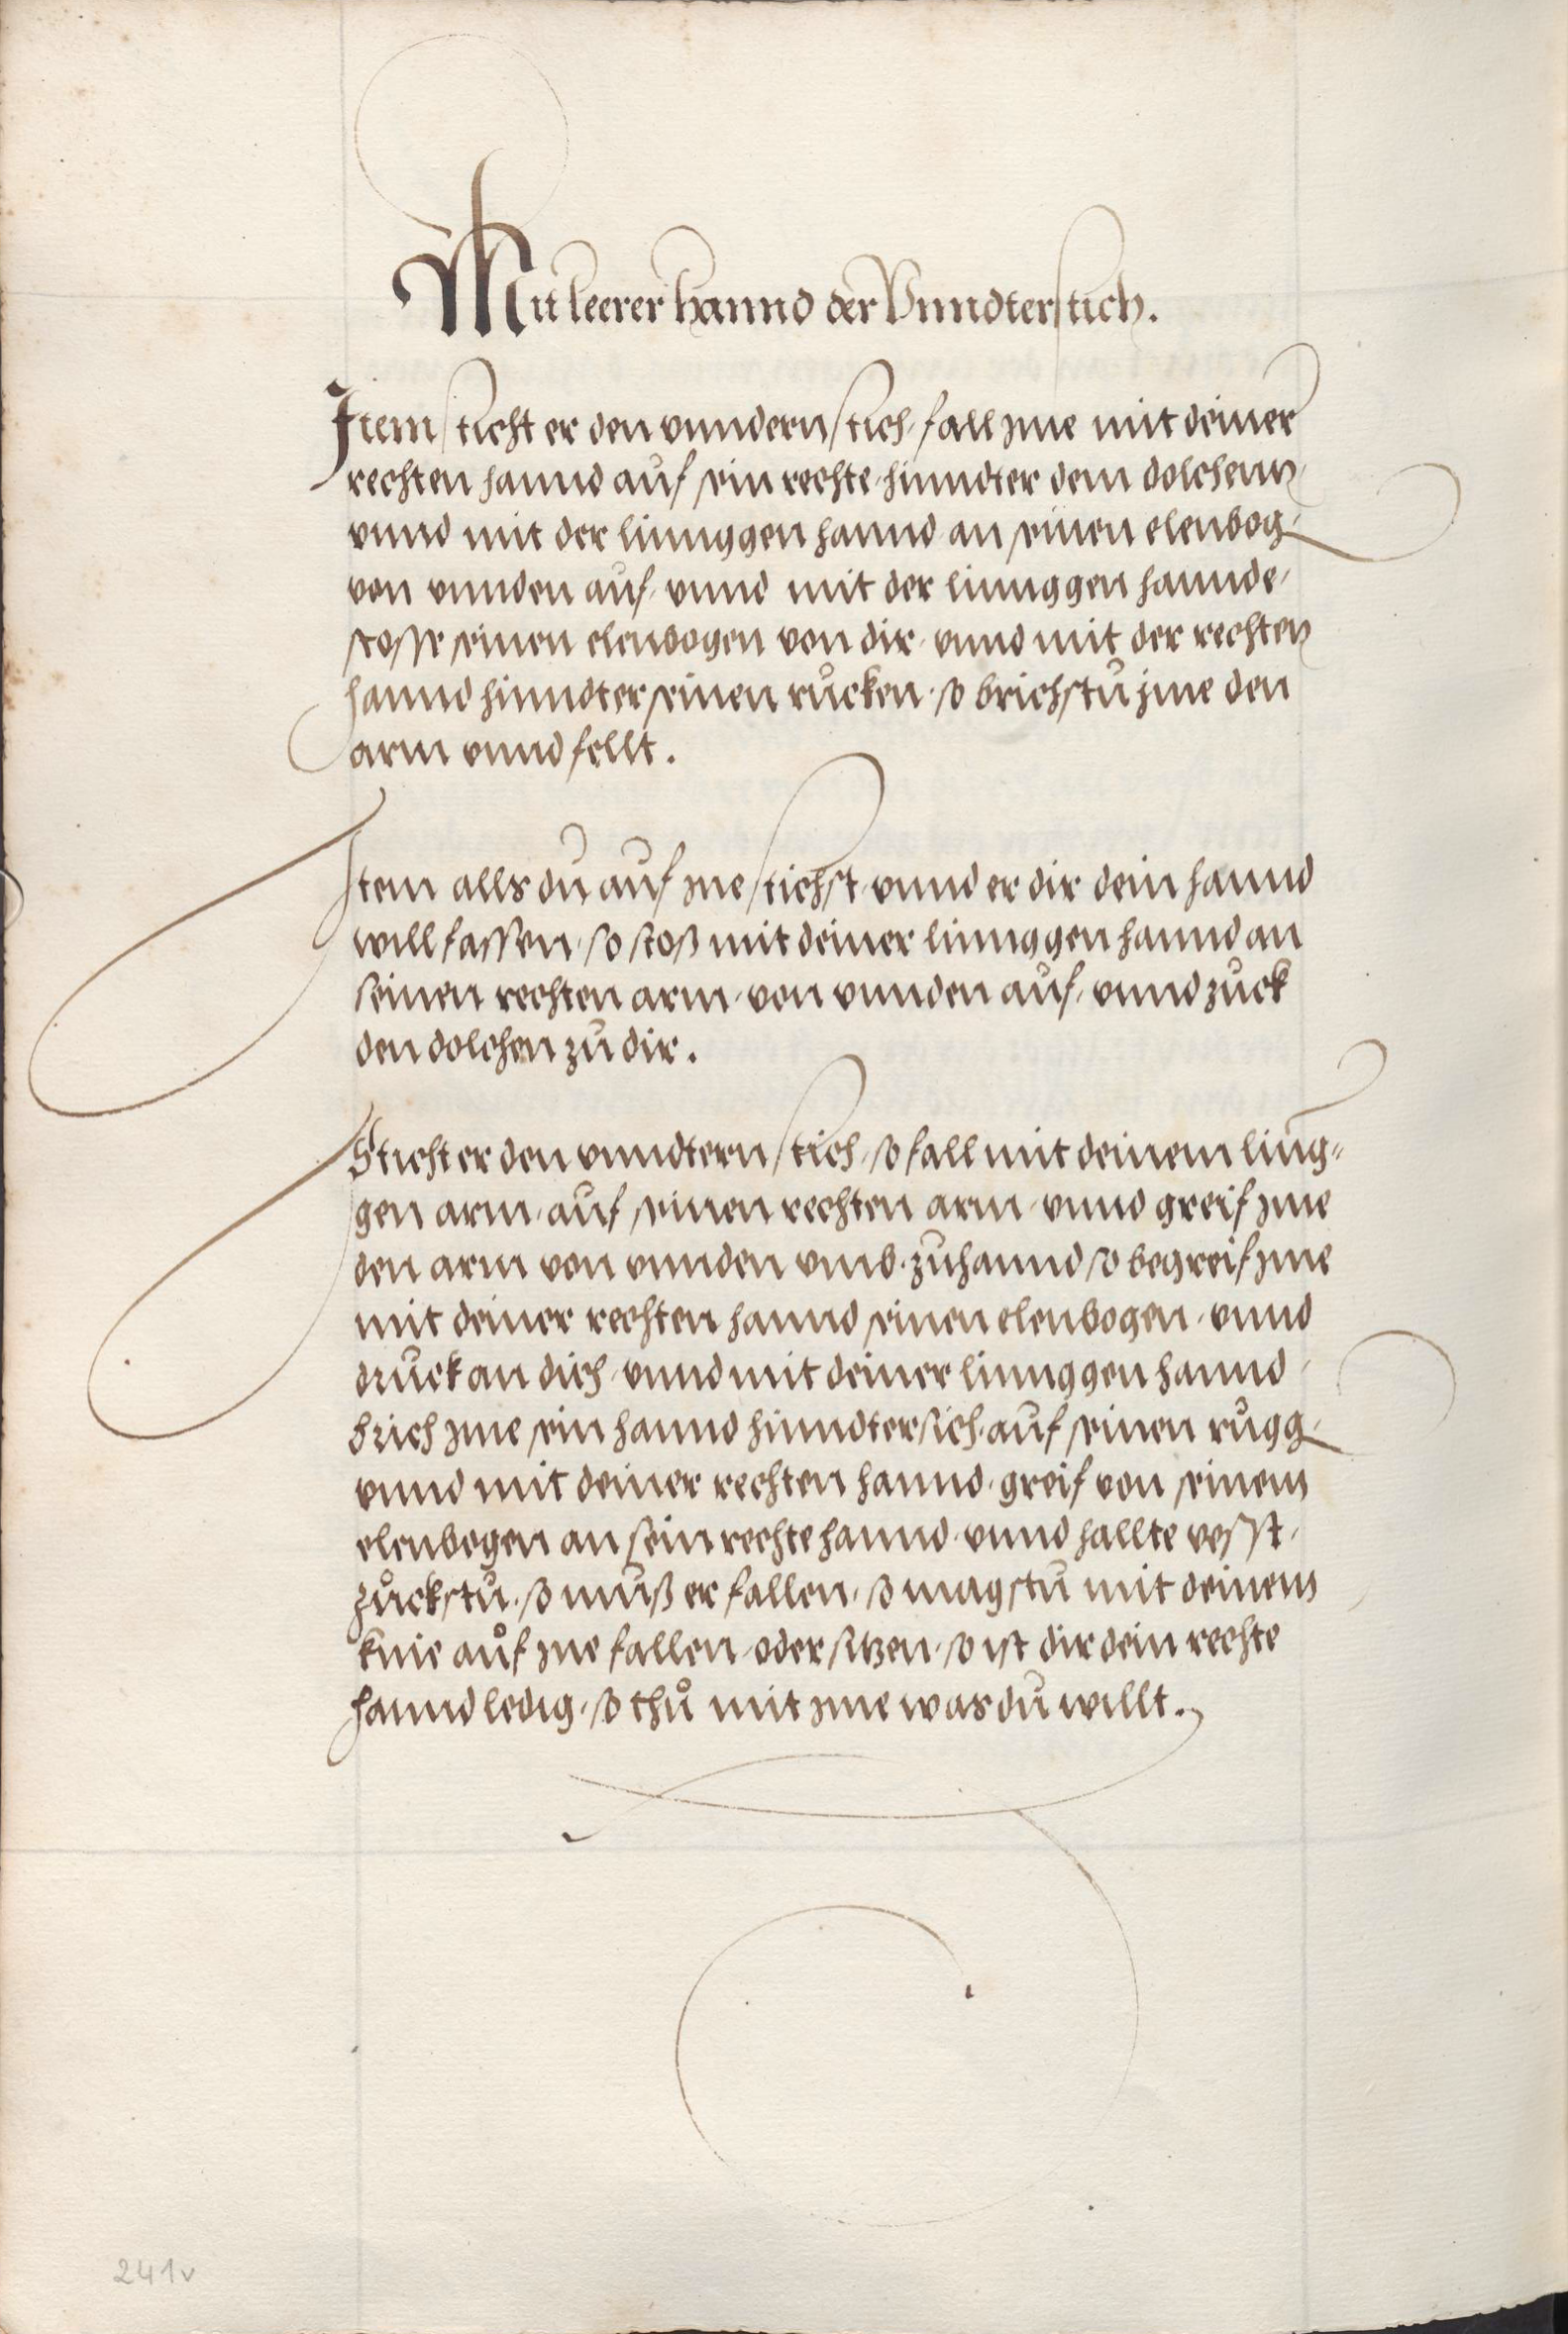 Mit leerer hannd der Vnndterstich.
Item sticht er den vnndern stich, fall jme mit deiner
rechten hannd auf sein rechte, hinndter dem dolchenn,
vnnd mit der linnggen hannd an seinen elenbog,
von vnnden auf, vnnd mit der linnggen hannde,
stosse seinen elenbogen von dir, vnnd mit der rechten
hannd hinndter seinen růcken, so brichstu jme den
arm vnnd fellt.
Item alls du auf jne stichst, vnnd er dir dein hannd
will fassen, so stoß mit deiner linnggen hannd an
seinen rechten arm, von vnnden auf, vnnd zuck
den dolchen zu dir.
Sticht er den vnndtern stich, so fall mit deinem ling-
gen arm, auf seinen rechten arm, vnnd greif jme
den arm von vnnden vmb, zuhannd so begreif jme
mit deiner rechten hannd seinen elenbogen, vnnd
druck an dich, vnnd mit deiner linnggen hannd,
brich jme sein hannd hinndtersich, auf seinen rugg,
vnnd mit deiner rechten hannd, greif von seinem
elenbogen an sein rechte hannd, vnnd hallte vesst,
zůckstu, so muß er fallen, so magstu mit deinem
knie auf jne fallen, oder sitzen, so ist dir dein rechte
hannd ledig, so thů mit jme was du willt.
241v